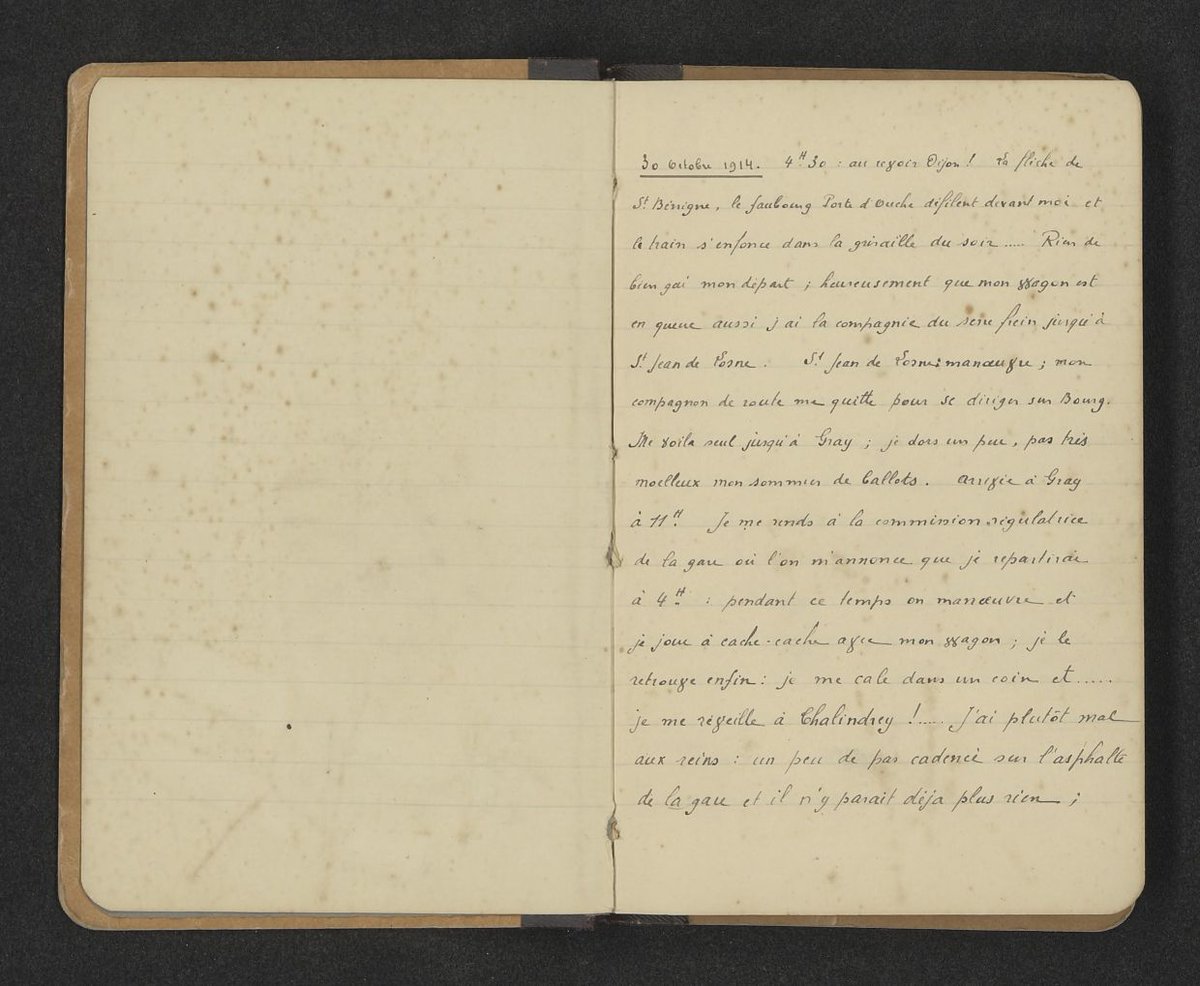 30 Octobre 1914. 4H30 : au revoir Dijon ! La flèche de
St Bénigne, le faubourg Porte d'Ouche défilent devant moi et
le train s'enfonce dans la grisaille du soir ..... Rien de
bien gai mon départ ; heureusement que mon wagon est
en queue aussi j'ai la compagnie du serre frein jusqu'à
St Jean de Losne. St Jean de Losne : manœuvre ; mon
compagnon de route me quitte pour se diriger sur Bourg.
Me voila seul jusqu'à Gray ; je dors un peu, pas très
moelleux mon sommier de ballots. Arrivée à Gray
à 11H. Je me rends à la commission régulatrice
de la gare où l'on m'annonce que je repartirai
à 4H. : pendant ce temps on manœuvre et
je joue à cache-cache avec mon wagon ; je le
retrouve enfin : je me cale dans un coin et .....
je me réveille à Chalindrey ! ..... J'ai plutôt mal
aux reins : un peu de pas cadencé sur l'asphalte
de la gare et il n'y parait déja plus rien ;